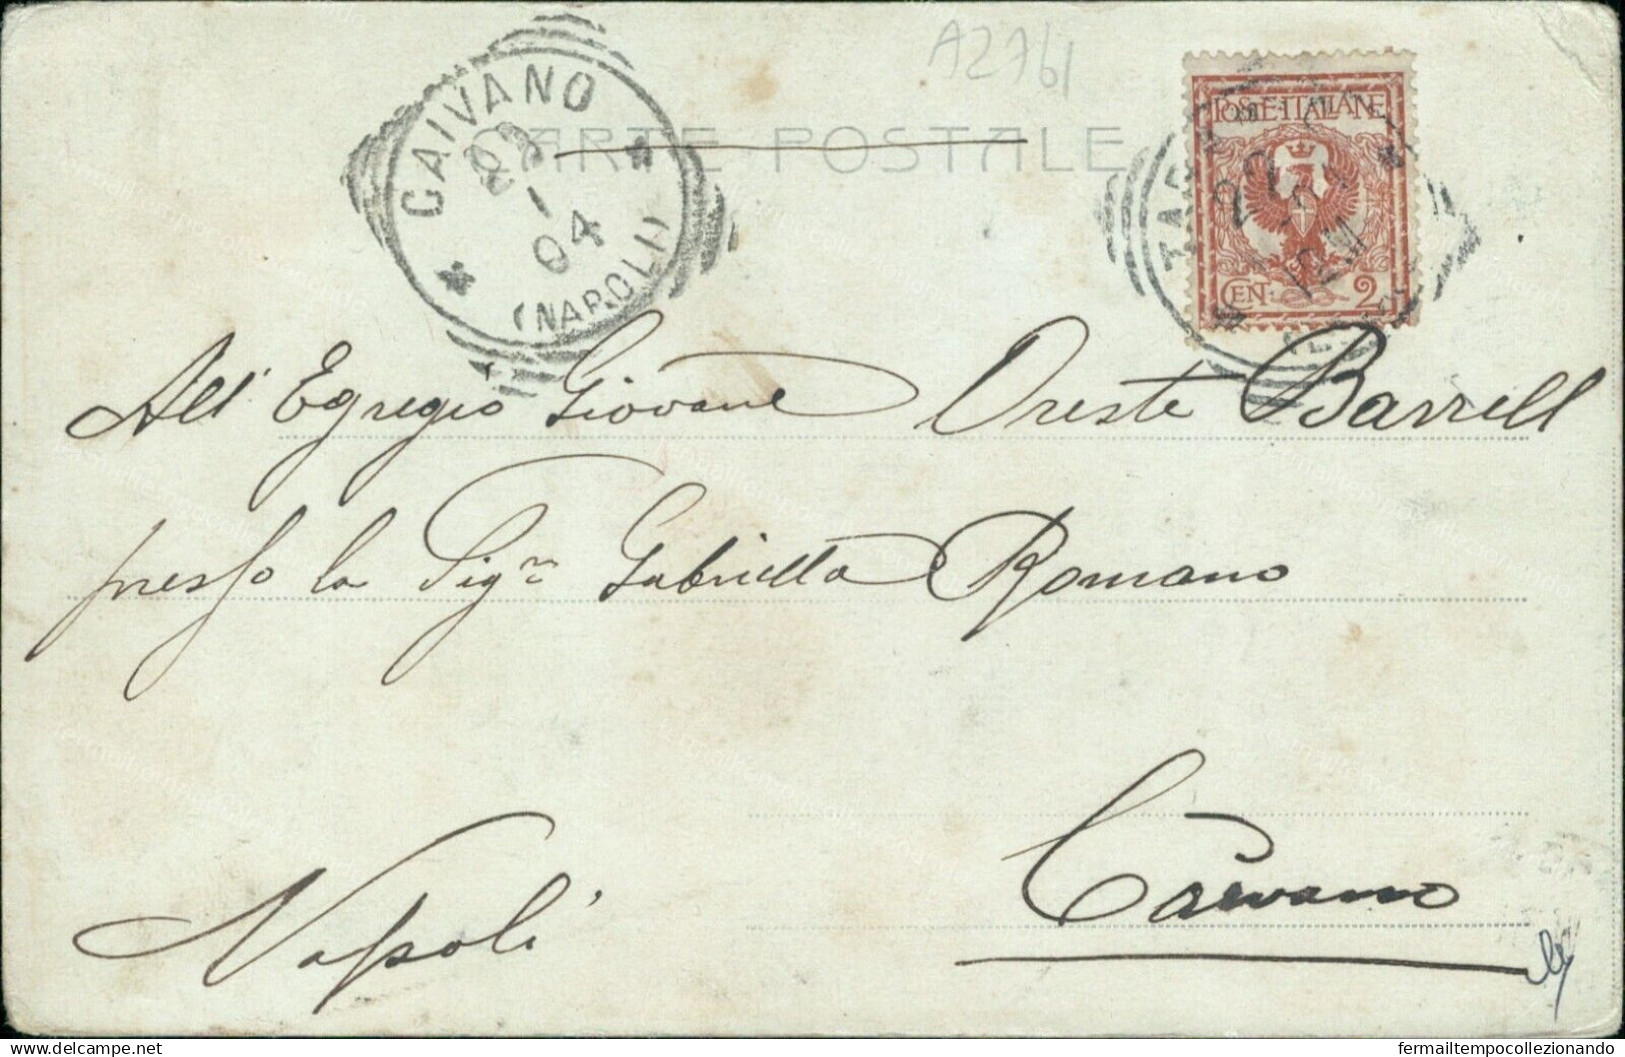 A2761
CAIVANO
(NAPOLI)
-1
04
CARTE POSTALE
POSTE·ITALIANE
22
12M
CENT. 2
All' Egregio Giovane Oreste Barrell
presso la Sig.ra Gabriella Romano
Caivano
Napoli
fermailtempocollezionando